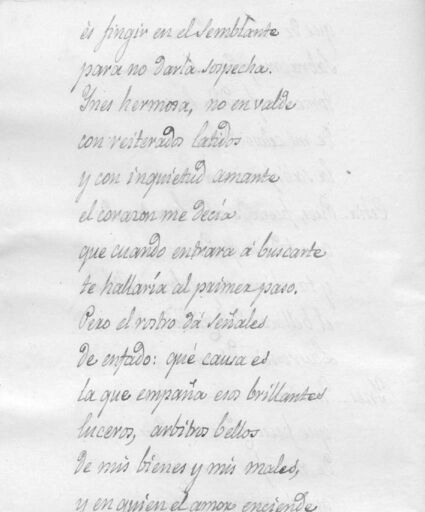 es fingir en el semblante
para no darla sospecha.
Ynes hermosa, no en valde
con reiterados latidos
y con inquietud amante
el corazon me decía
que cuando entrara á buscarte
te hallaría al primer paso.
Pero el rostro dá señales
de enfado: qué causa es
la que empaña esos brillantes
luceros, arbitros bellos
de mis bienes y mis males,
y en quien el amor enciende